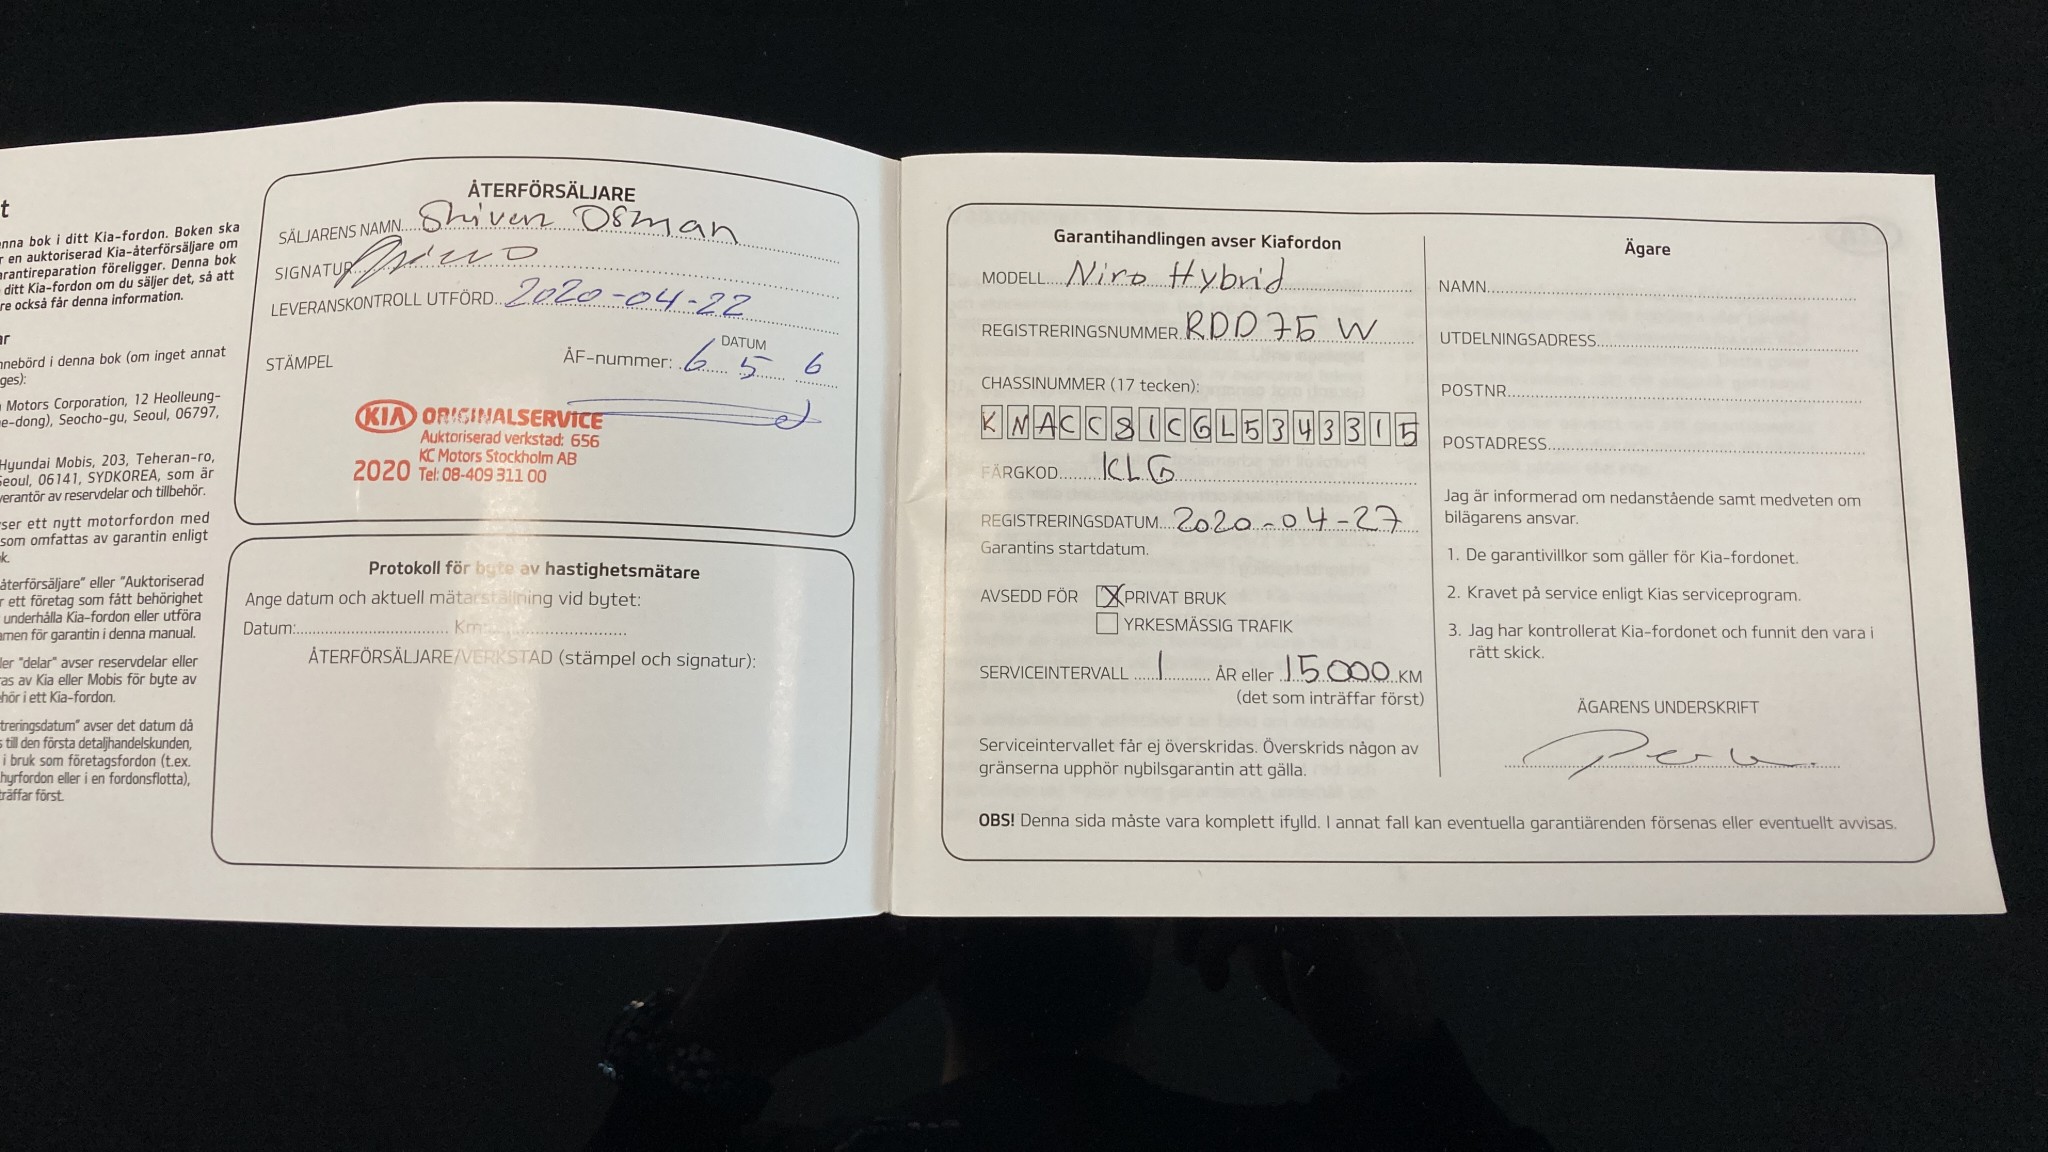 t
nna bok i ditt Kia-fordon. Boken ska
r en auktoriserad Kia-återförsäljare om
rantireparation föreligger. Denna bok
ditt Kia-fordon om du säljer det, så att
re också får denna information.
ar
nnebörd i denna bok (om inget annat
ges):
Motors Corporation, 12 Heolleung-
e-dong), Seocho-gu, Seoul, 06797,
Hyundai Mobis, 203, Teheran-ro,
Seoul, 06141, SYDKOREA, som är
verantör av reservdelar och tillbehör.
ser ett nytt motorfordon med
som omfattas av garantin enligt
k.
återförsäljare" eller "Auktoriserad
r ett företag som fått behörighet
underhålla Kia-fordon eller utföra
amen för garantin i denna manual.
ler "delar" avser reservdelar eller
ras av Kia eller Mobis för byte av
hör i ett Kia-fordon.
treringsdatum" avser det datum då
s till den första detaljhandelskunden,
i bruk som företagsfordon (t.ex.
hyrfordon eller i en fordonsflotta),
träffar först.
ÅTERFÖRSÄLJARE
SÄLJARENS NAMN Shiven Osman
SIGNATUR
LEVERANSKONTROLL UTFÖRD 2020-04-22
DATUM
STÄMPEL ÅF-nummer: 6 5 6
KIA ORIGINALSERVICE
Auktoriserad verkstad: 656
KC Motors Stockholm AB
2020 Tel: 08-409 311 00
Protokoll för byte av hastighetsmätare
Ange datum och aktuell mätarställning vid bytet:
Datum: Km:
ÅTERFÖRSÄLJARE/VERKSTAD (stämpel och signatur):
Garantihandlingen avser Kiafordon
MODELL Niro Hybrid
REGISTRERINGSNUMMER RDD75W
CHASSINUMMER (17 tecken):
KNACC81CGL5343315
FÄRGKOD KLG
REGISTRERINGSDATUM 2020-04-27
Garantins startdatum.
AVSEDD FÖR X PRIVAT BRUK
YRKESMÄSSIG TRAFIK
SERVICEINTERVALL 1 ÅR eller 15000 KM
(det som inträffar först)
Serviceintervallet får ej överskridas. Överskrids någon av
gränserna upphör nybilsgarantin att gälla.
Ägare
NAMN
UTDELNINGSADRESS
POSTNR
POSTADRESS
Jag är informerad om nedanstående samt medveten om
bilägarens ansvar.
1. De garantivillkor som gäller för Kia-fordonet.
2. Kravet på service enligt Kias serviceprogram.
3. Jag har kontrollerat Kia-fordonet och funnit den vara i
rätt skick.
ÄGARENS UNDERSKRIFT
OBS! Denna sida måste vara komplett ifylld. I annat fall kan eventuella garantiärenden försenas eller eventuellt avvisas.